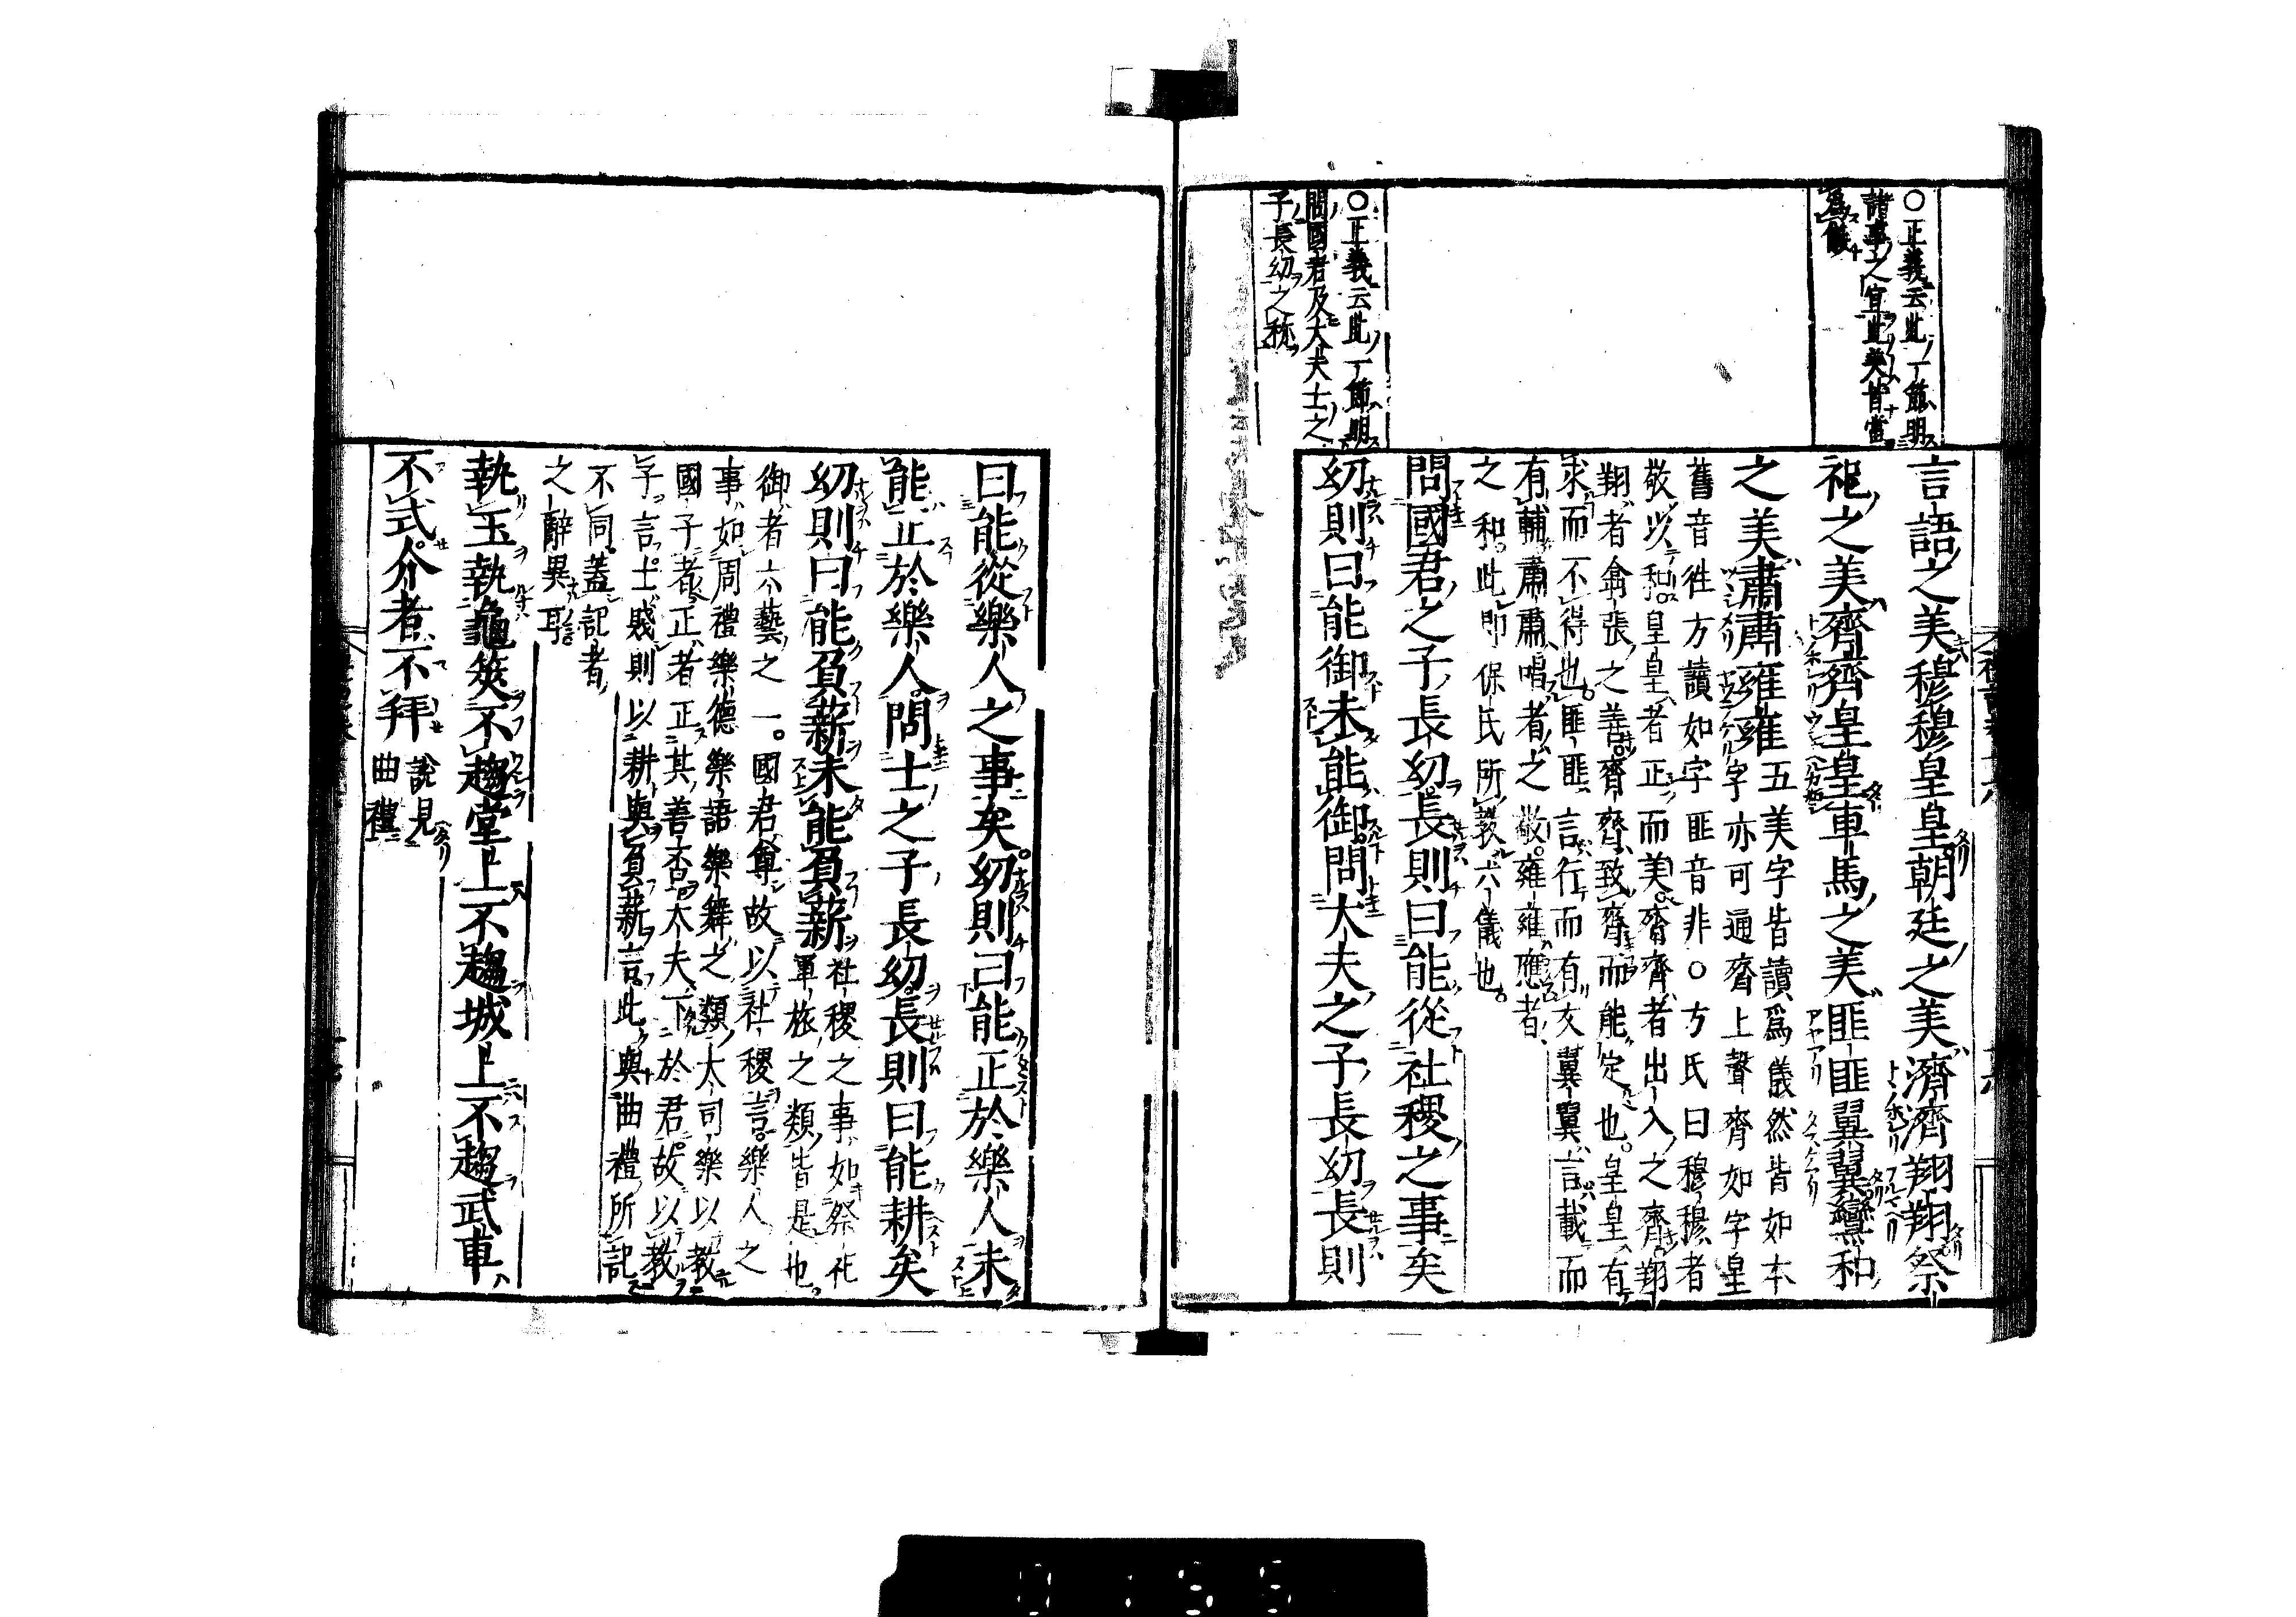 ○正義云此一節明
諸事之宜此美皆當
爲儀
言語之美穆穆皇皇朝廷之美濟濟翔翔祭
祀之美齊齊皇皇車馬之美匪匪翼翼鸞和
之美肅肅雍雍五美字皆讀爲儀然皆如本
字亦可通齊上聲齊如字皇
舊音往方讀如字匪音非○方氏曰穆穆者
敬以和皇皇者正而美齊齊者出入之齊翔
翔者翕張之善齊齊致齊而能定也皇皇有
求而不得也匪匪言行而有文翼翼言載而
有輔肅肅唱者之敬雍雍應者
之和此即保氏所教六儀也
○正義云此一節明
問國者及大夫士之
子長幼之称
問國君之子長幼長則曰能從社稷之事矣
幼則曰能御未能御問大夫之子長幼長則
曰能從樂人之事矣幼則曰能正於樂人未
能正於樂人問士之子長幼長則曰能耕矣
幼則曰能負薪未能負薪社稷之事如祭祀
軍旅之類皆是也
御者六藝之一國君尊故以社稷言樂人之
事如周禮樂德樂語樂舞之類大司樂以教
國子者正者正其善否大夫下於君故以教
子言士賤則以耕與負薪言此與曲禮所記
不同蓋記者
之辭異耳
執玉執龜筴不趨堂上不趨城上不趨武車
不式介者不拜說見
曲禮